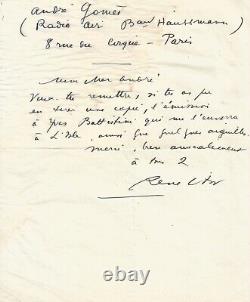 André Gomès
(Radio air Bard Haussmann)
8 rue du Cirque - Paris
Mon cher André
Veux-tu remettre, si tu as pu
en tirer une copie, l'émission
à Yves Battistini qui me l'enverra
à L'Isle, ainsi que quelques aiguilles
merci, bien amicalement
à tous 2
René Char